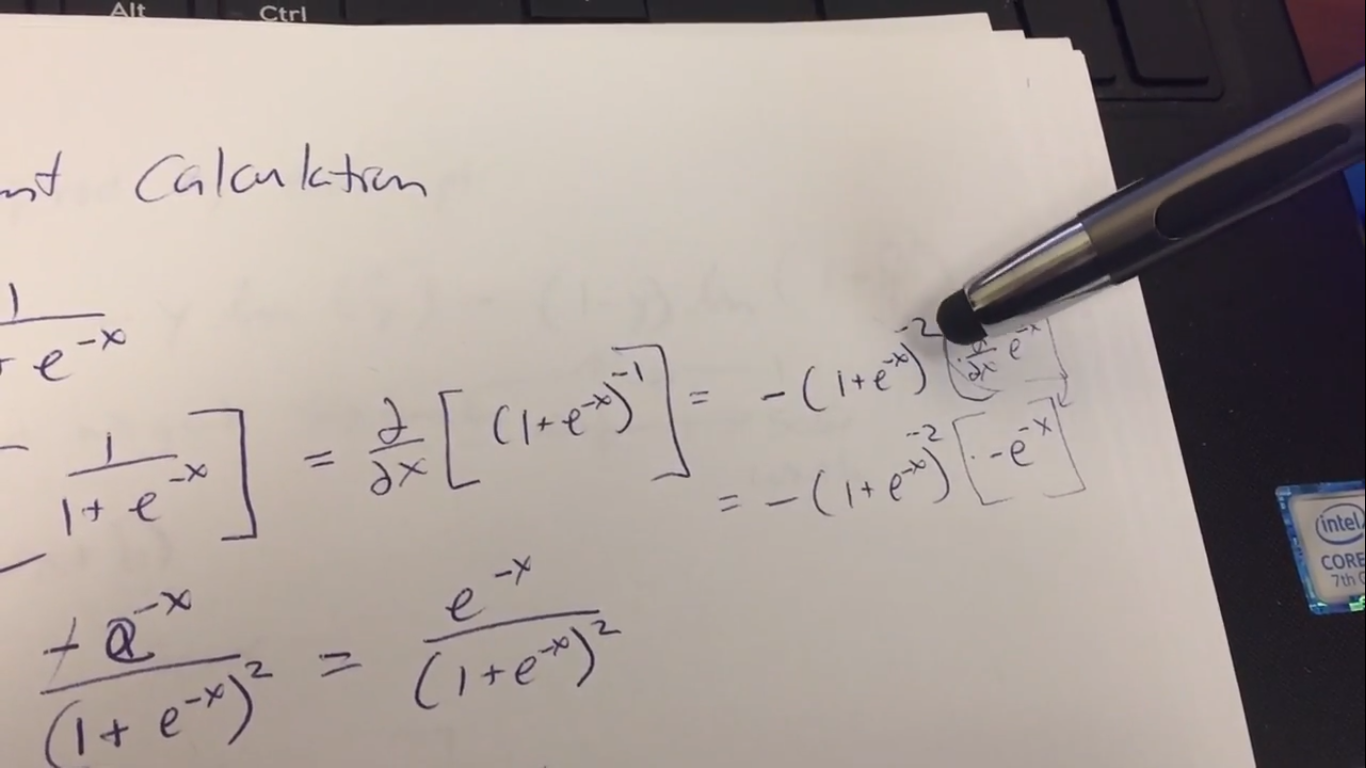 Alt Ctrl
Calculation
1
e^{-x}
\frac{1}{1 + e^{-x}} ] = \frac{∂}{∂x} [ (1+e^{-x})^{-1} ] = -(1+e^{-x})^{-2} ( \frac{∂}{∂x} e^{-x}
= -(1+e^{-x})^{-2} [ · -e^{-x} ]
\frac{+ e^{-x}}{(1 + e^{-x})^2} = \frac{e^{-x}}{(1+e^{-x})^2}
intel
CORE
7th